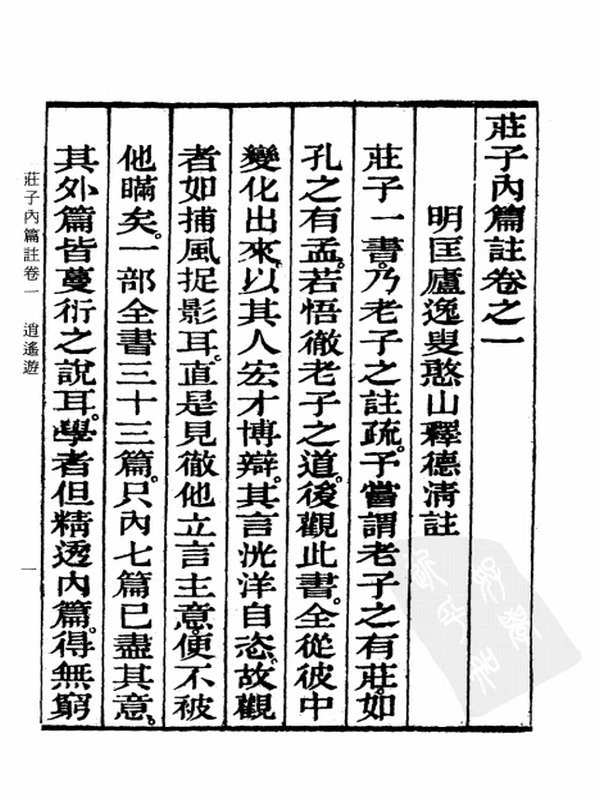 莊子內篇註卷之一
明匡廬逸叟憨山釋德清註
莊子一書。乃老子之註疏。予嘗謂老子之有莊。如
孔之有孟。若悟徹老子之道。後觀此書。全從彼中
變化出來。以其人宏才博辯。其言洸洋自恣。故觀
者如捕風捉影耳。直是見徹他立言主意。便不被
他瞞矣。一部全書三十三篇。只內七篇已盡其意。
其外篇皆蔓衍之說耳。學者但精透內篇。得無窮
莊子內篇註卷一　逍遙遊
一